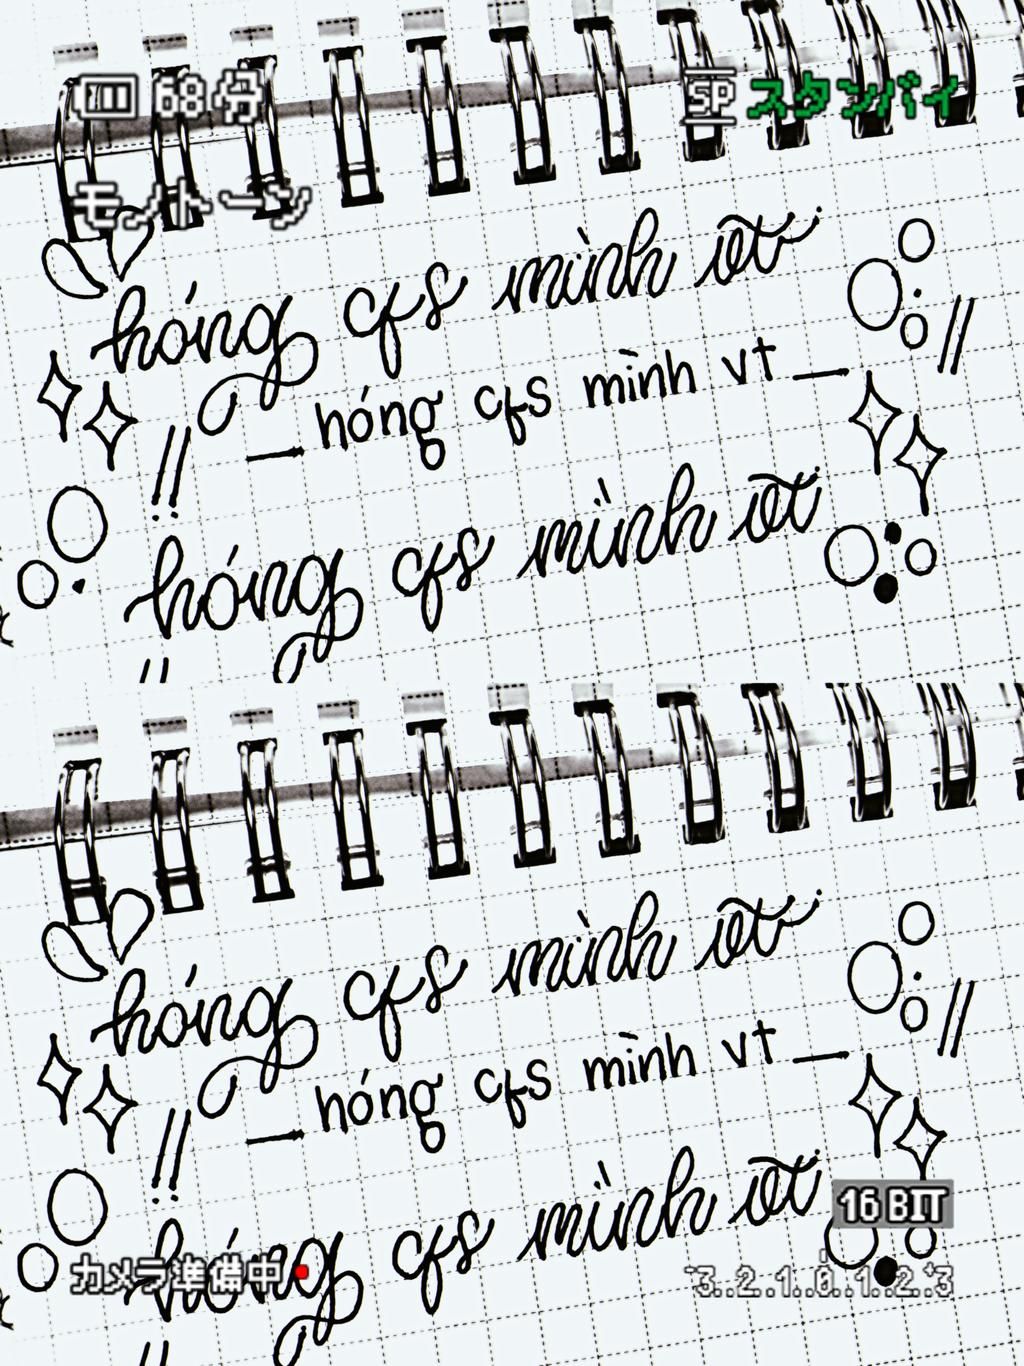 68分
SP スタンバイ
モノトーン
hóng cfs mình vt
hóng cfs mình vt
hóng cfs mình vt
hóng cfs mình vt
hóng cfs mình vt
hóng cfs mình vt
16 BIT
カメラ準備中
3..2..1..0..1..2..3